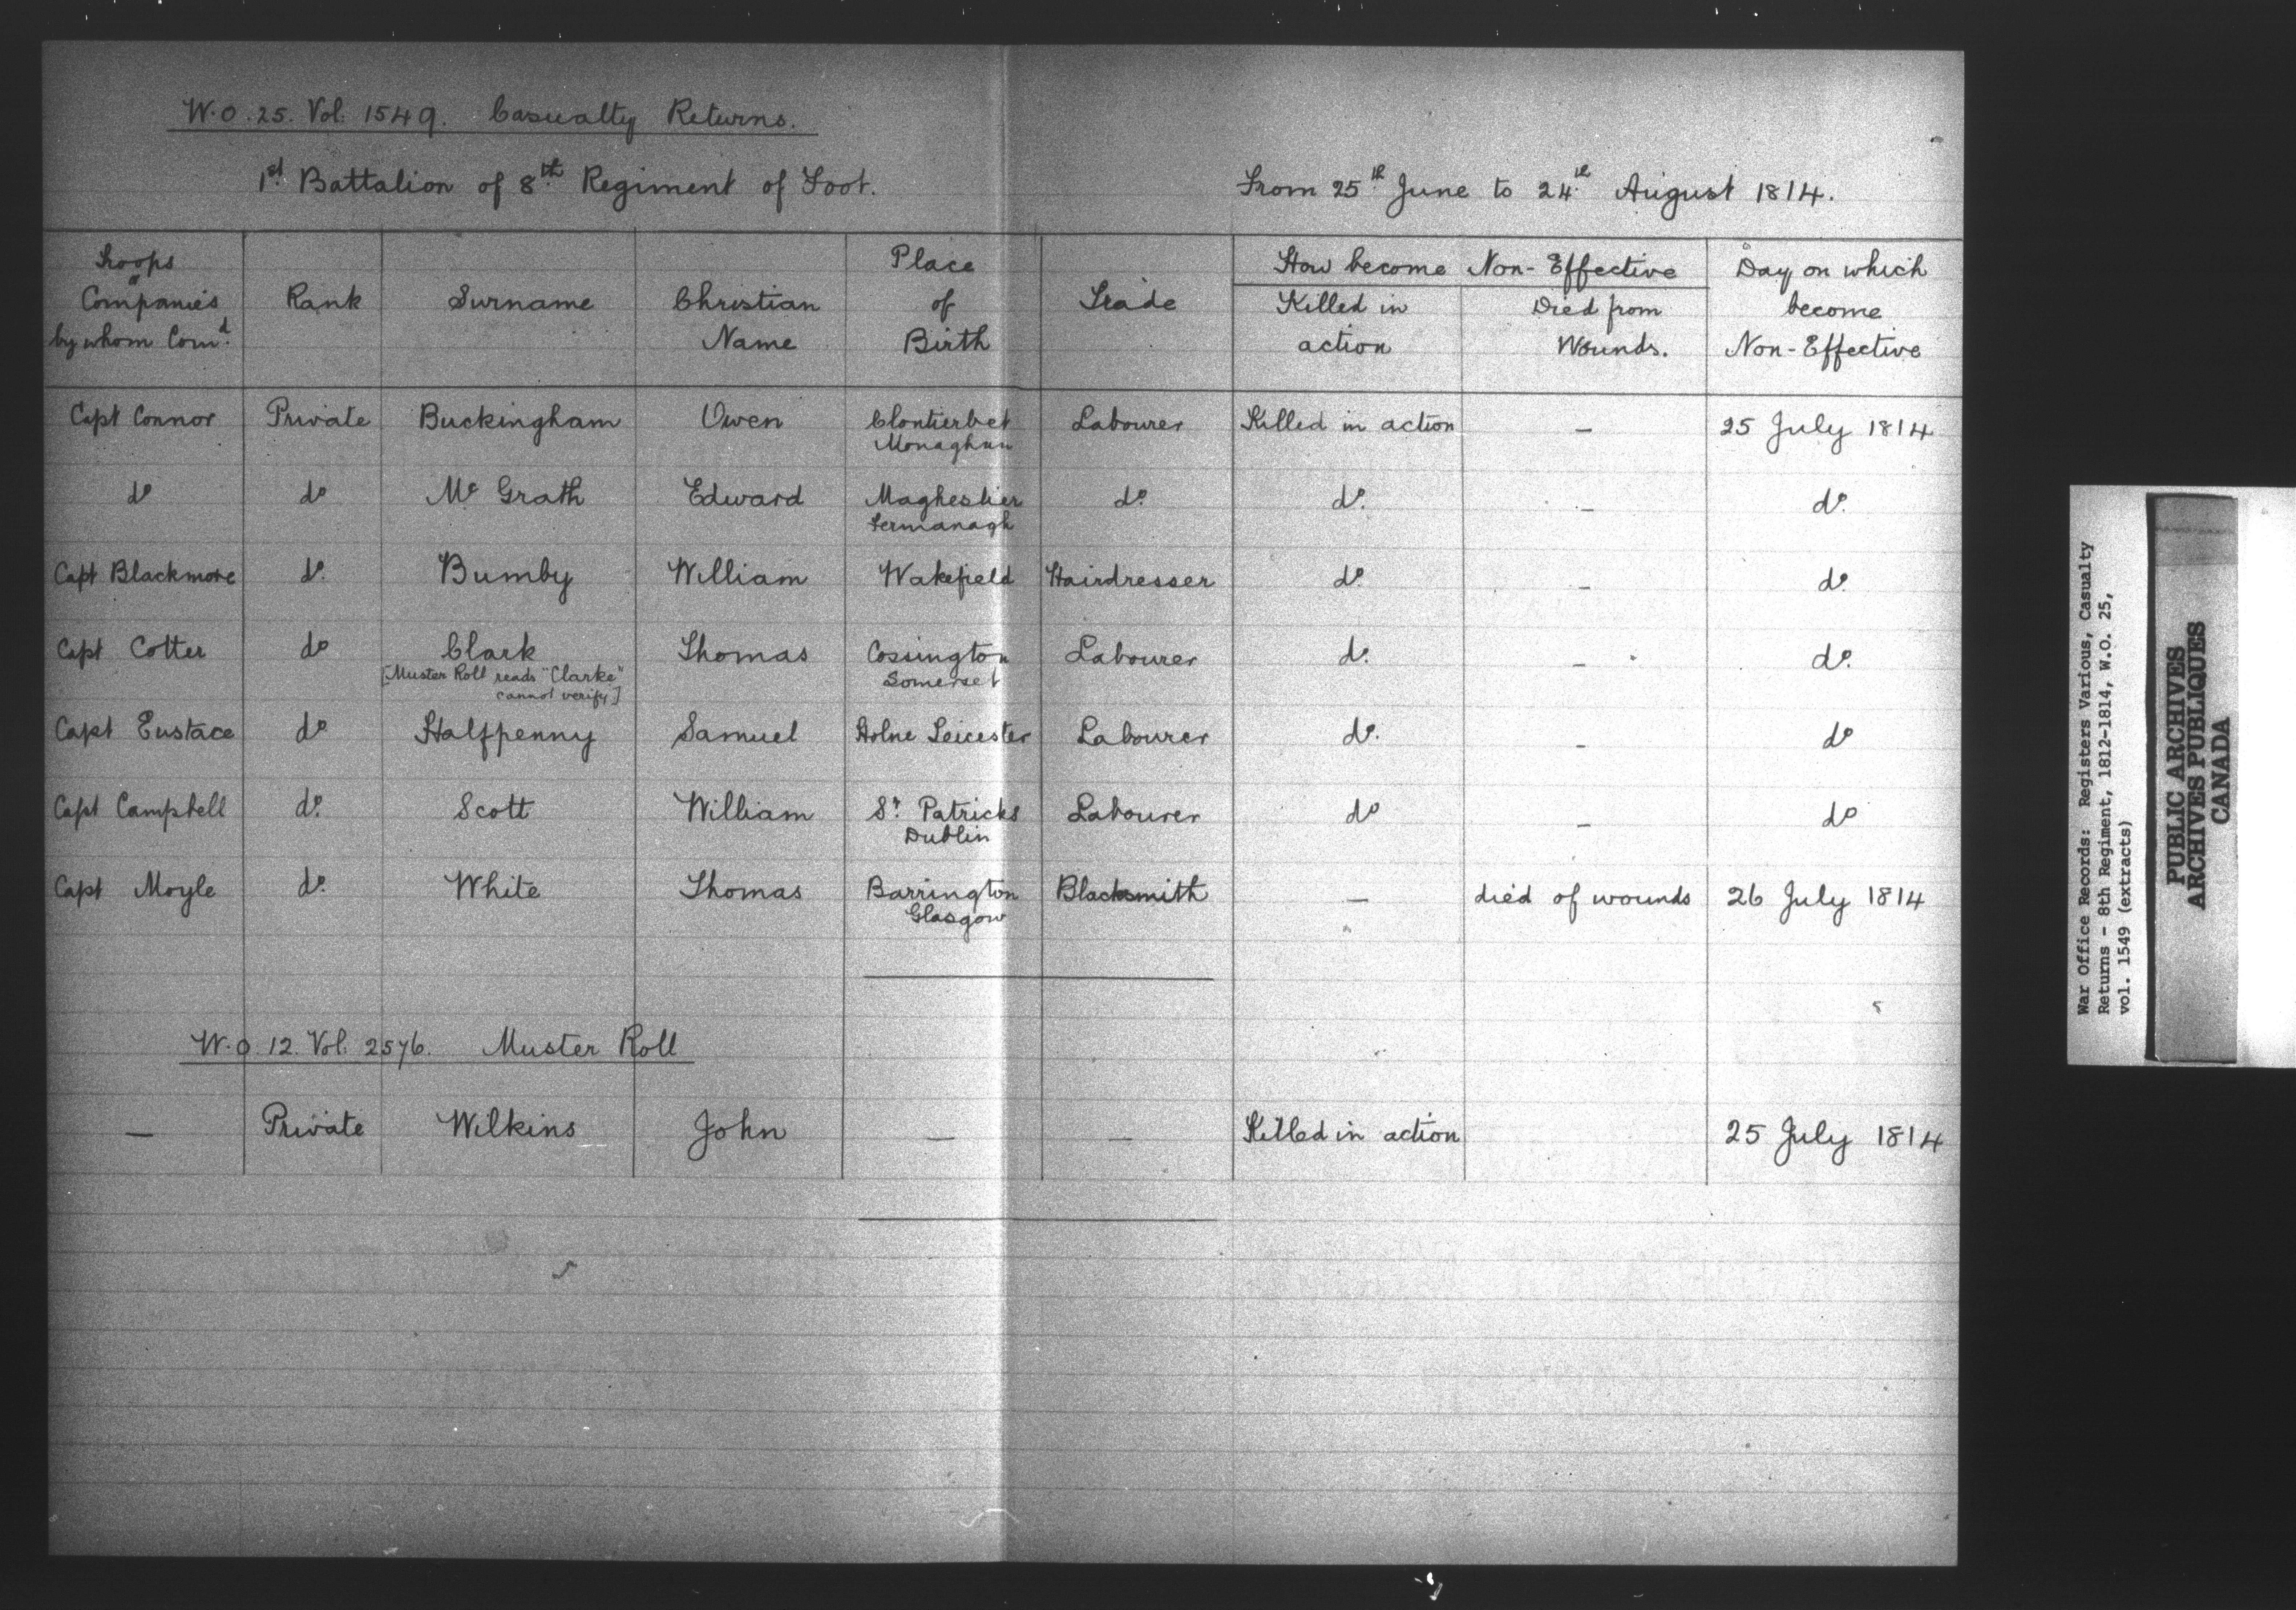 W.O. 25. Vol: 1549. Casualty Returns.
1st Battalion of 8th Regiment of Foot. From 25th June to 24th August 1814.
Troops or Companies by whom Comd. Rank Surname Christian Name Place of Birth Trade How become Non-Effective Killed in action Died from Wounds. Day on which become Non-Effective
Capt Connor Private Buckingham Owen Clontierbet Labourer Killed in action – 25 July 1814
Monaghan
do do Mc Grath Edward Maghestier do. do. – do.
Fermanagh
Capt Blackmore do. Bumby William Wakefield Hairdresser do. – do.
Capt Cotter do Clark Thomas Cossington Labourer do. – do.
[Muster Roll reads "Clarke" Somerset
cannot verify]
Capt Eustace do Halfpenny Samuel Holne Leicester Labourer do. – do
Capt Campbell do. Scott William St. Patricks Labourer do – do
Dublin
Capt Moyle do. White Thomas Barrington Blacksmith – died of wounds 26 July 1814
Glasgow
W.O. 12. Vol: 2576. Muster Roll
– Private Wilkins John – – Killed in action 25 July 1814
War Office Records: Registers Various, Casualty
Returns - 8th Regiment, 1812-1814, W.O. 25,
vol. 1549 (extracts)
PUBLIC ARCHIVES
ARCHIVES PUBLIQUES
CANADA